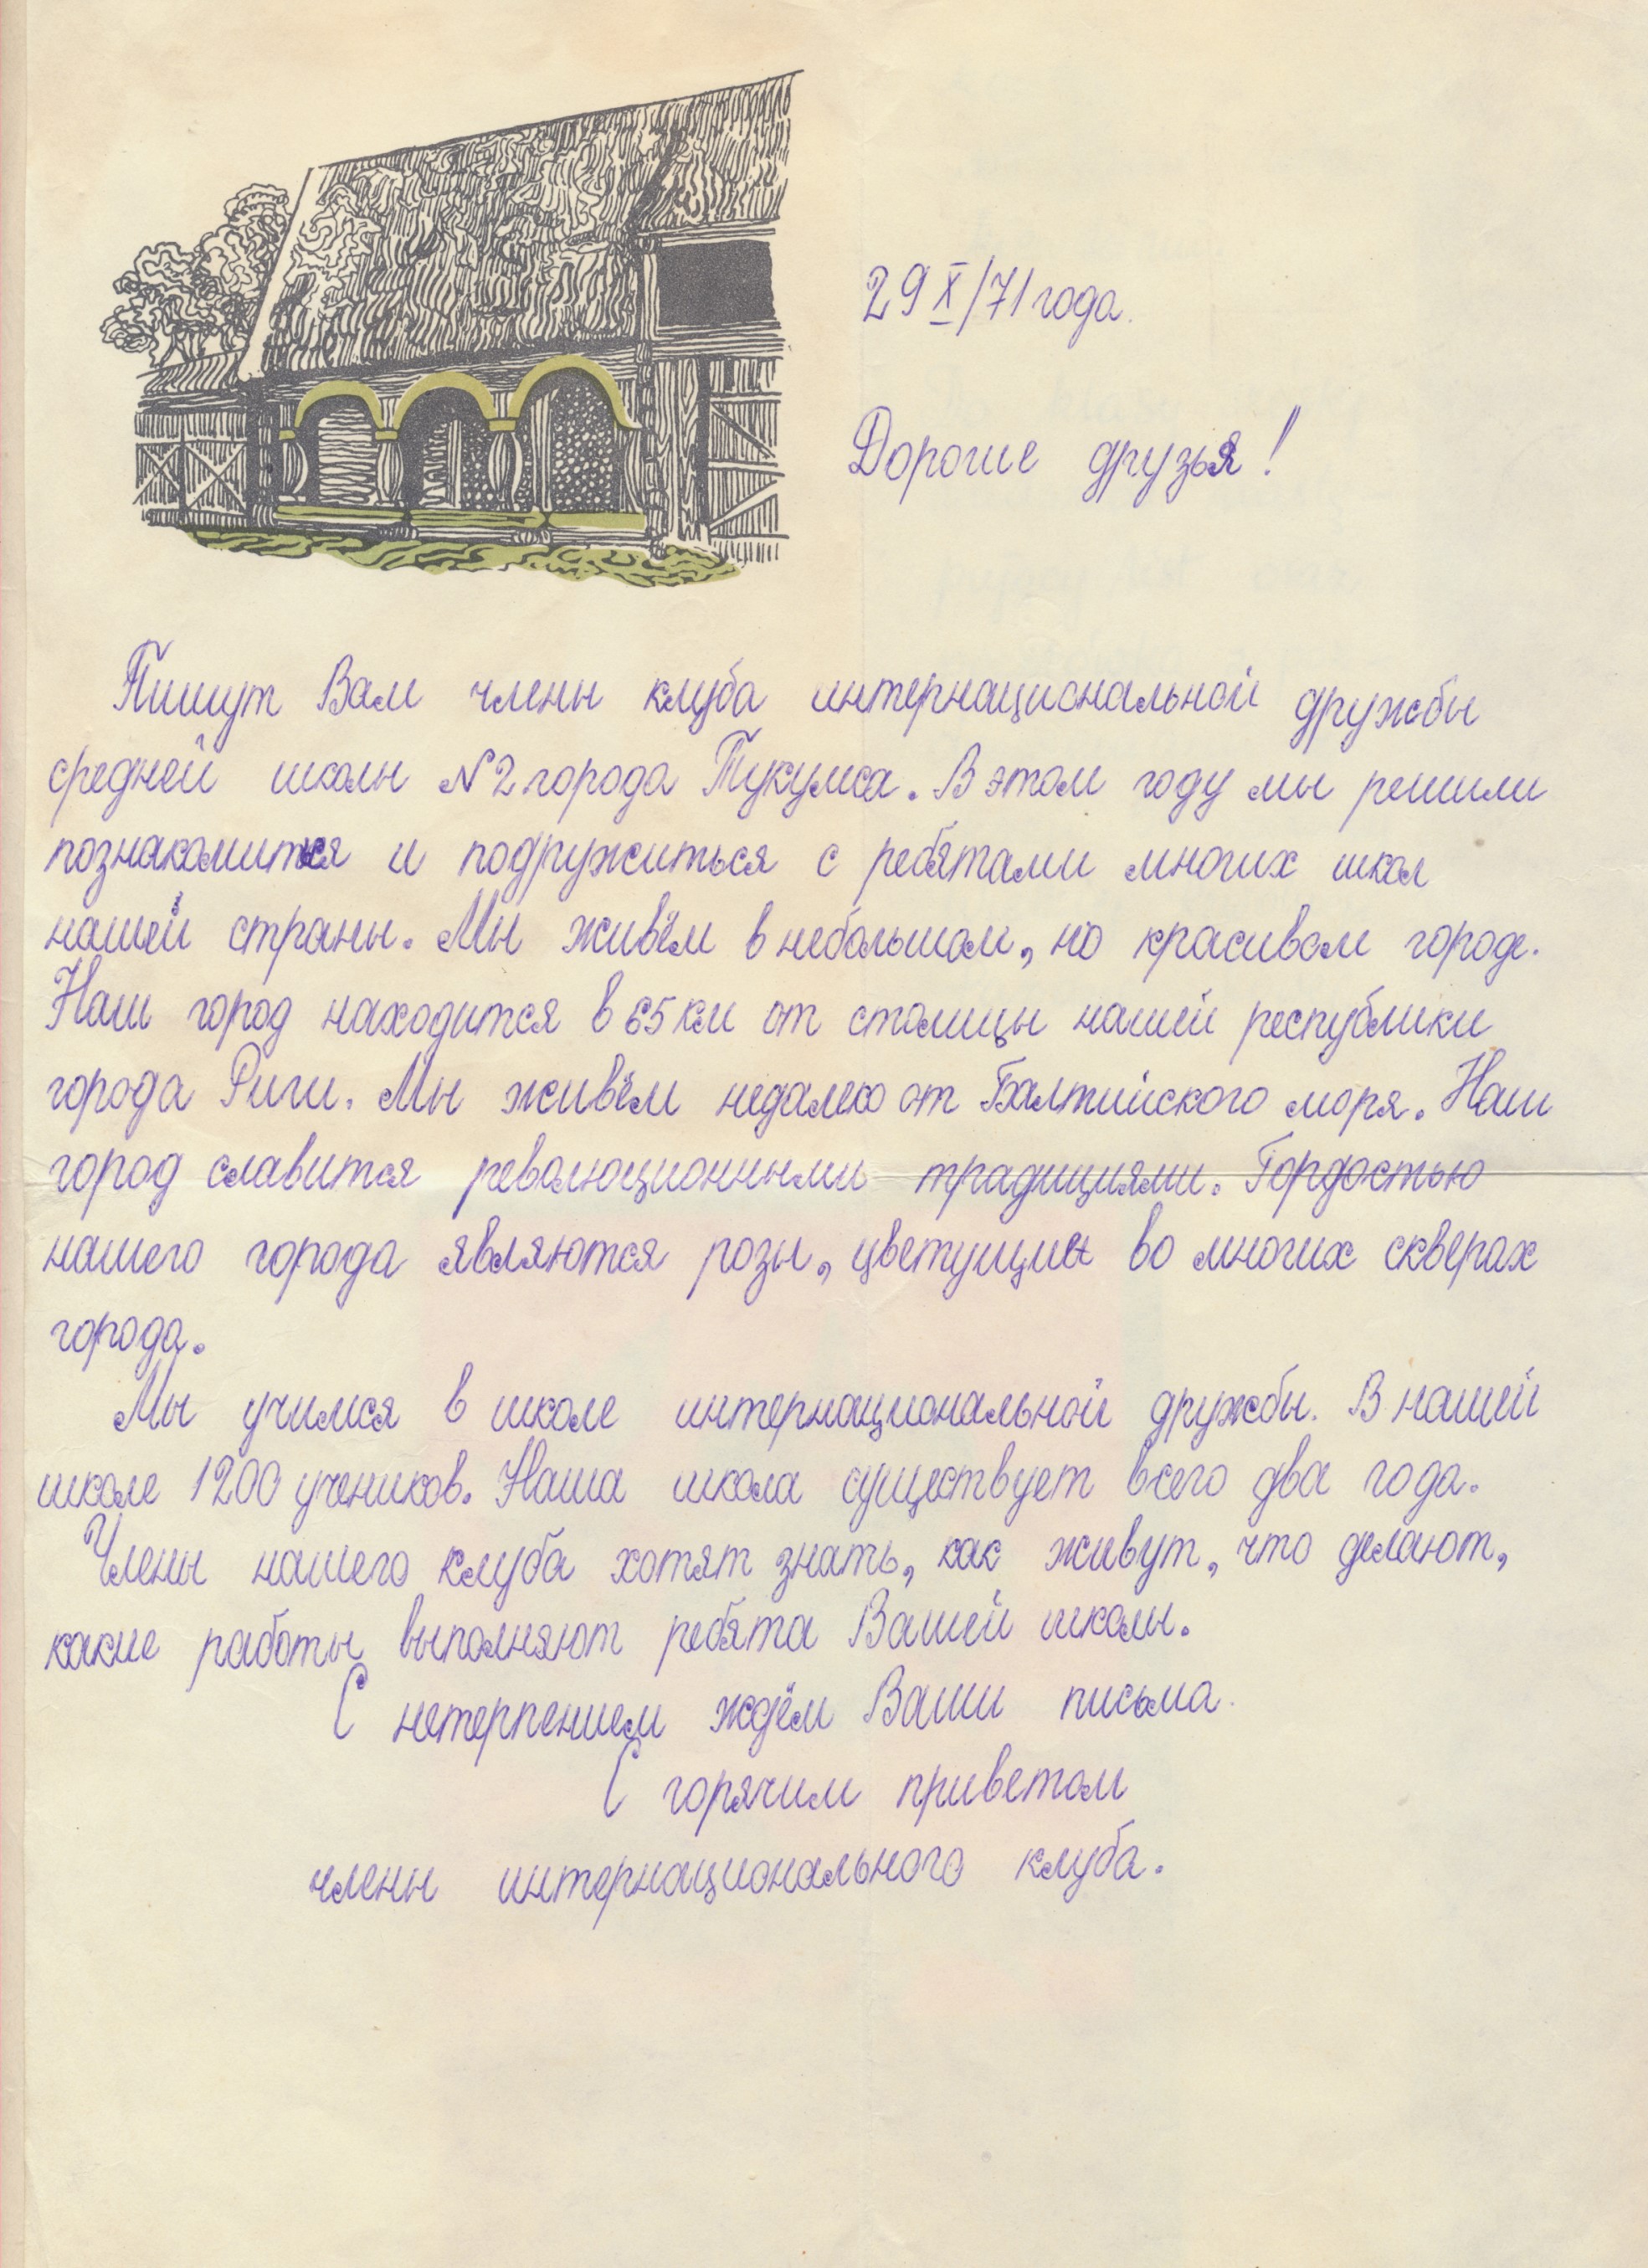 29 X/71 года.
Дорогие друзья!
Пишут Вам члены клуба интернациональной дружбы
средней школы №2 города Тукумса. В этом году мы решили
познакомится и подружиться с ребятами многих школ
нашей страны. Мы живём в небольшом, но красивом городе.
Наш город находится в 65 км от столицы нашей республики
города Риги. Мы живём недалеко от Балтийского моря. Наш
город славится революционными традициями. Гордостью
нашего города являются розы, цветущие во многих скверах
города.
Мы учимся в школе интернациональной дружбы. В нашей
школе 1200 учеников. Наша школа существует всего два года.
Члены нашего клуба хотят знать, как живут, что делают,
какие работы выполняют ребята Вашей школы.
С нетерпением ждём Ваши письма.
С горячим приветом
члены интернационального клуба.